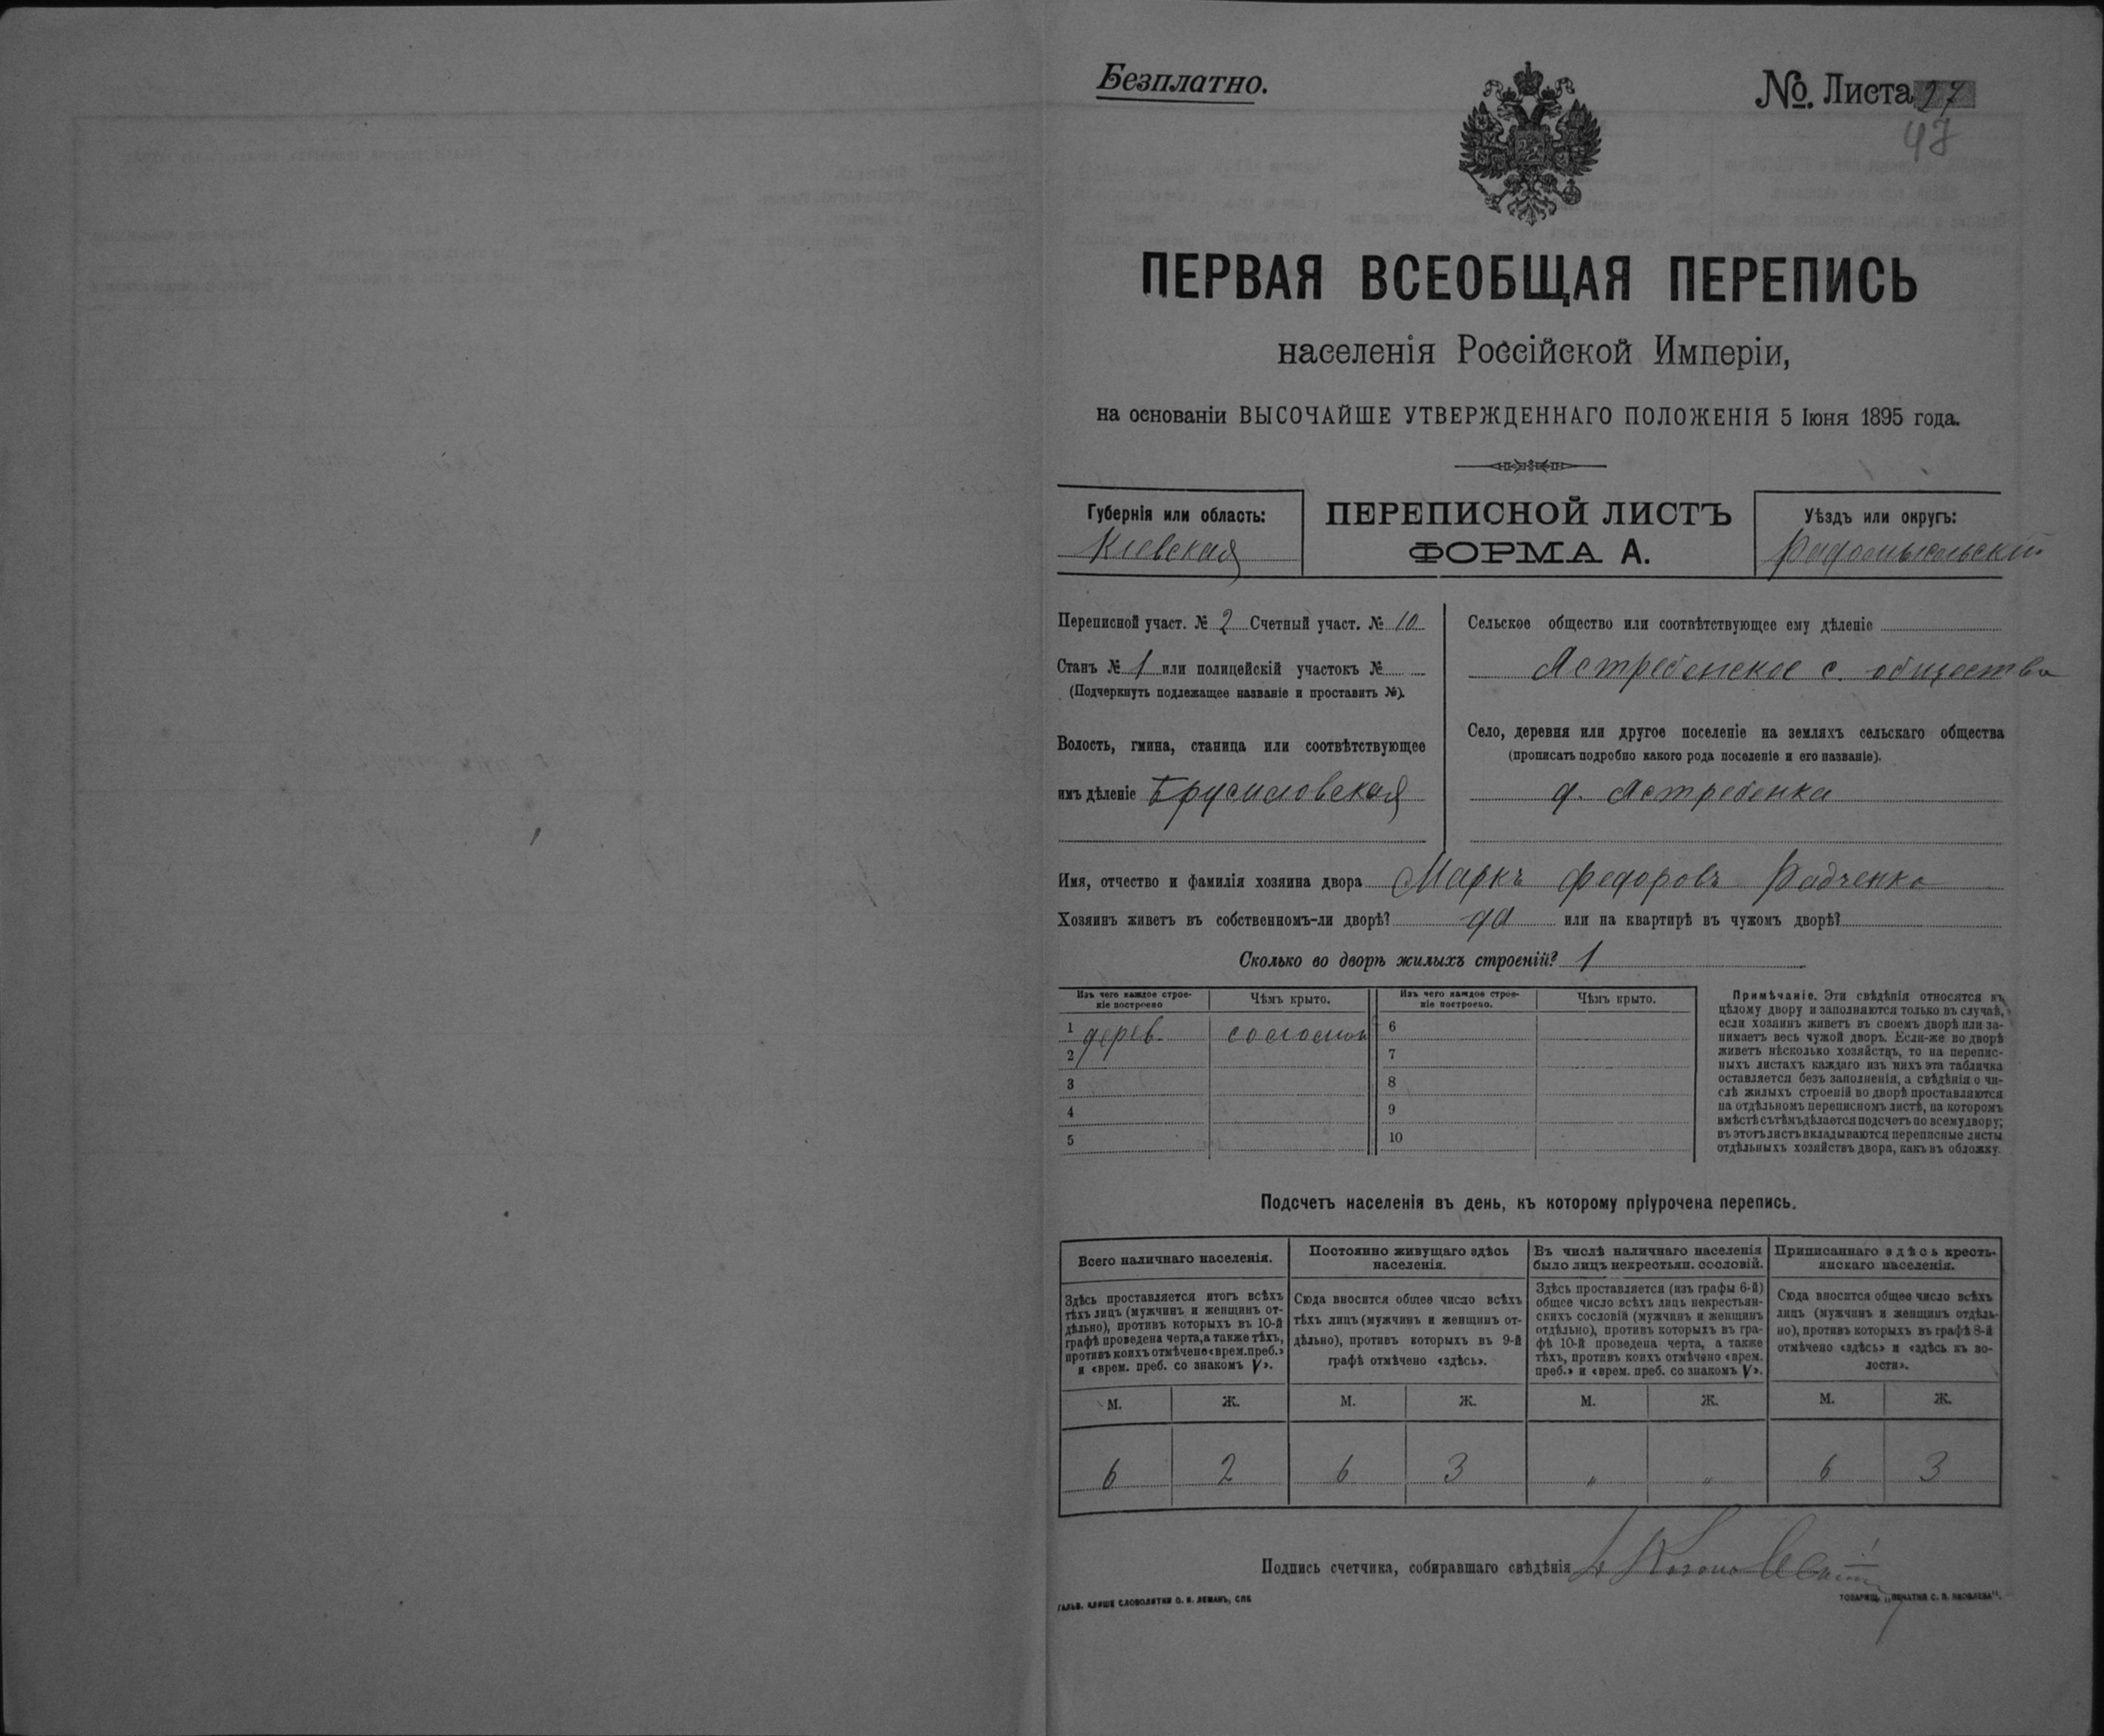 Безплатно.
№ Листа 27
47
ПЕРВАЯ ВСЕОБЩАЯ ПЕРЕПИСЬ
населенія Россійской Имперіи,
на основаніи ВЫСОЧАЙШЕ УТВЕРЖДЕННАГО ПОЛОЖЕНІЯ 5 Іюня 1895 года.
Губернія или область:
Кіевская
ПЕРЕПИСНОЙ ЛИСТЪ
ФОРМА А.
Уѣздъ или округъ:
Радомысльскій
Переписной участ. № 2 Счетный участ. № 10
Станъ № 1 или полицейскій участокъ №
(Подчеркнуть подлежащее названіе и проставить №).
Волость, гмина, станица или соотвѣтствующее
имъ дѣленіе Брусиловская
Сельское общество или соотвѣтствующее ему дѣленіе
Ястребенское с. общества
Село, деревня или другое поселеніе на земляхъ сельскаго общества
(прописать подробно какого рода поселеніе и его названіе).
д. Ястребенка
Имя, отчество и фамилія хозяина двора Маркъ Федоровъ Радченко
Хозяинъ живетъ въ собственномъ-ли дворѣ? да или на квартирѣ въ чужомъ дворѣ?
Сколько во дворѣ жилыхъ строеній? 1
Изъ чего каждое строе-
ніе построено
Чѣмъ крыто.
Изъ чего каждое строе-
ніе построено.
Чѣмъ крыто.
1 дерев. соломой 6
2 7
3 8
4 9
5 10
Примѣчаніе. Эти свѣдѣнія относятся къ
цѣлому двору и заполняются только въ случаѣ,
если хозяинъ живетъ въ своемъ дворѣ или за-
нимаетъ весь чужой дворъ. Если-же во дворѣ
живетъ нѣсколько хозяйствъ, то на перепис-
ныхъ листахъ каждаго изъ нихъ эта табличка
оставляется безъ заполненія, а свѣдѣнія о чи-
слѣ жилыхъ строеній во дворѣ проставляются
на отдѣльномъ переписномъ листѣ, на которомъ
вмѣстѣ съ тѣмъ дѣлается подсчетъ по всему двору;
въ этотъ листъ вкладываются переписные листы
отдѣльныхъ хозяйствъ двора, какъ въ обложку.
Подсчетъ населенія въ день, къ которому пріурочена перепись.
Всего наличнаго населенія.
Здѣсь проставляется итогъ всѣхъ
тѣхъ лицъ (мужчинъ и женщинъ от-
дѣльно), противъ которыхъ въ 10-й
графѣ проведена черта, а также тѣхъ,
противъ коихъ отмѣчено «врем. преб.»
и «врем. преб. со знакомъ V».
Постоянно живущаго здѣсь
населенія.
Сюда вносится общее число всѣхъ
тѣхъ лицъ (мужчинъ и женщинъ от-
дѣльно), противъ которыхъ въ 9-й
графѣ отмѣчено «здѣсь».
Въ числѣ наличнаго населенія
было лицъ некрестьян. сословій.
Здѣсь проставляется (изъ графы 6-й)
общее число всѣхъ лицъ некрестьян-
скихъ сословій (мужчинъ и женщинъ
отдѣльно), противъ которыхъ въ гра-
фѣ 10-й проведена черта, а также
тѣхъ, противъ коихъ отмѣчено «врем.
преб.» и «врем. преб. со знакомъ V».
Приписаннаго здѣсь кресть-
янскаго населенія.
Сюда вносится общее число всѣхъ
лицъ (мужчинъ и женщинъ отдѣль-
но), противъ которыхъ въ графѣ 8-й
отмѣчено «здѣсь» и «здѣсь къ во-
лости».
М. Ж. М. Ж. М. Ж. М. Ж.
6 2 6 3 „ „ 6 3
Подпись счетчика, собиравшаго свѣдѣнія
ГАЛЬВ. КЛИШЕ СЛОВОЛИТНИ О. И. ЛЕМАНЪ, СПБ
ТОВАРИЩ. „ПЕЧАТНЯ С. П. ЯКОВЛЕВА".